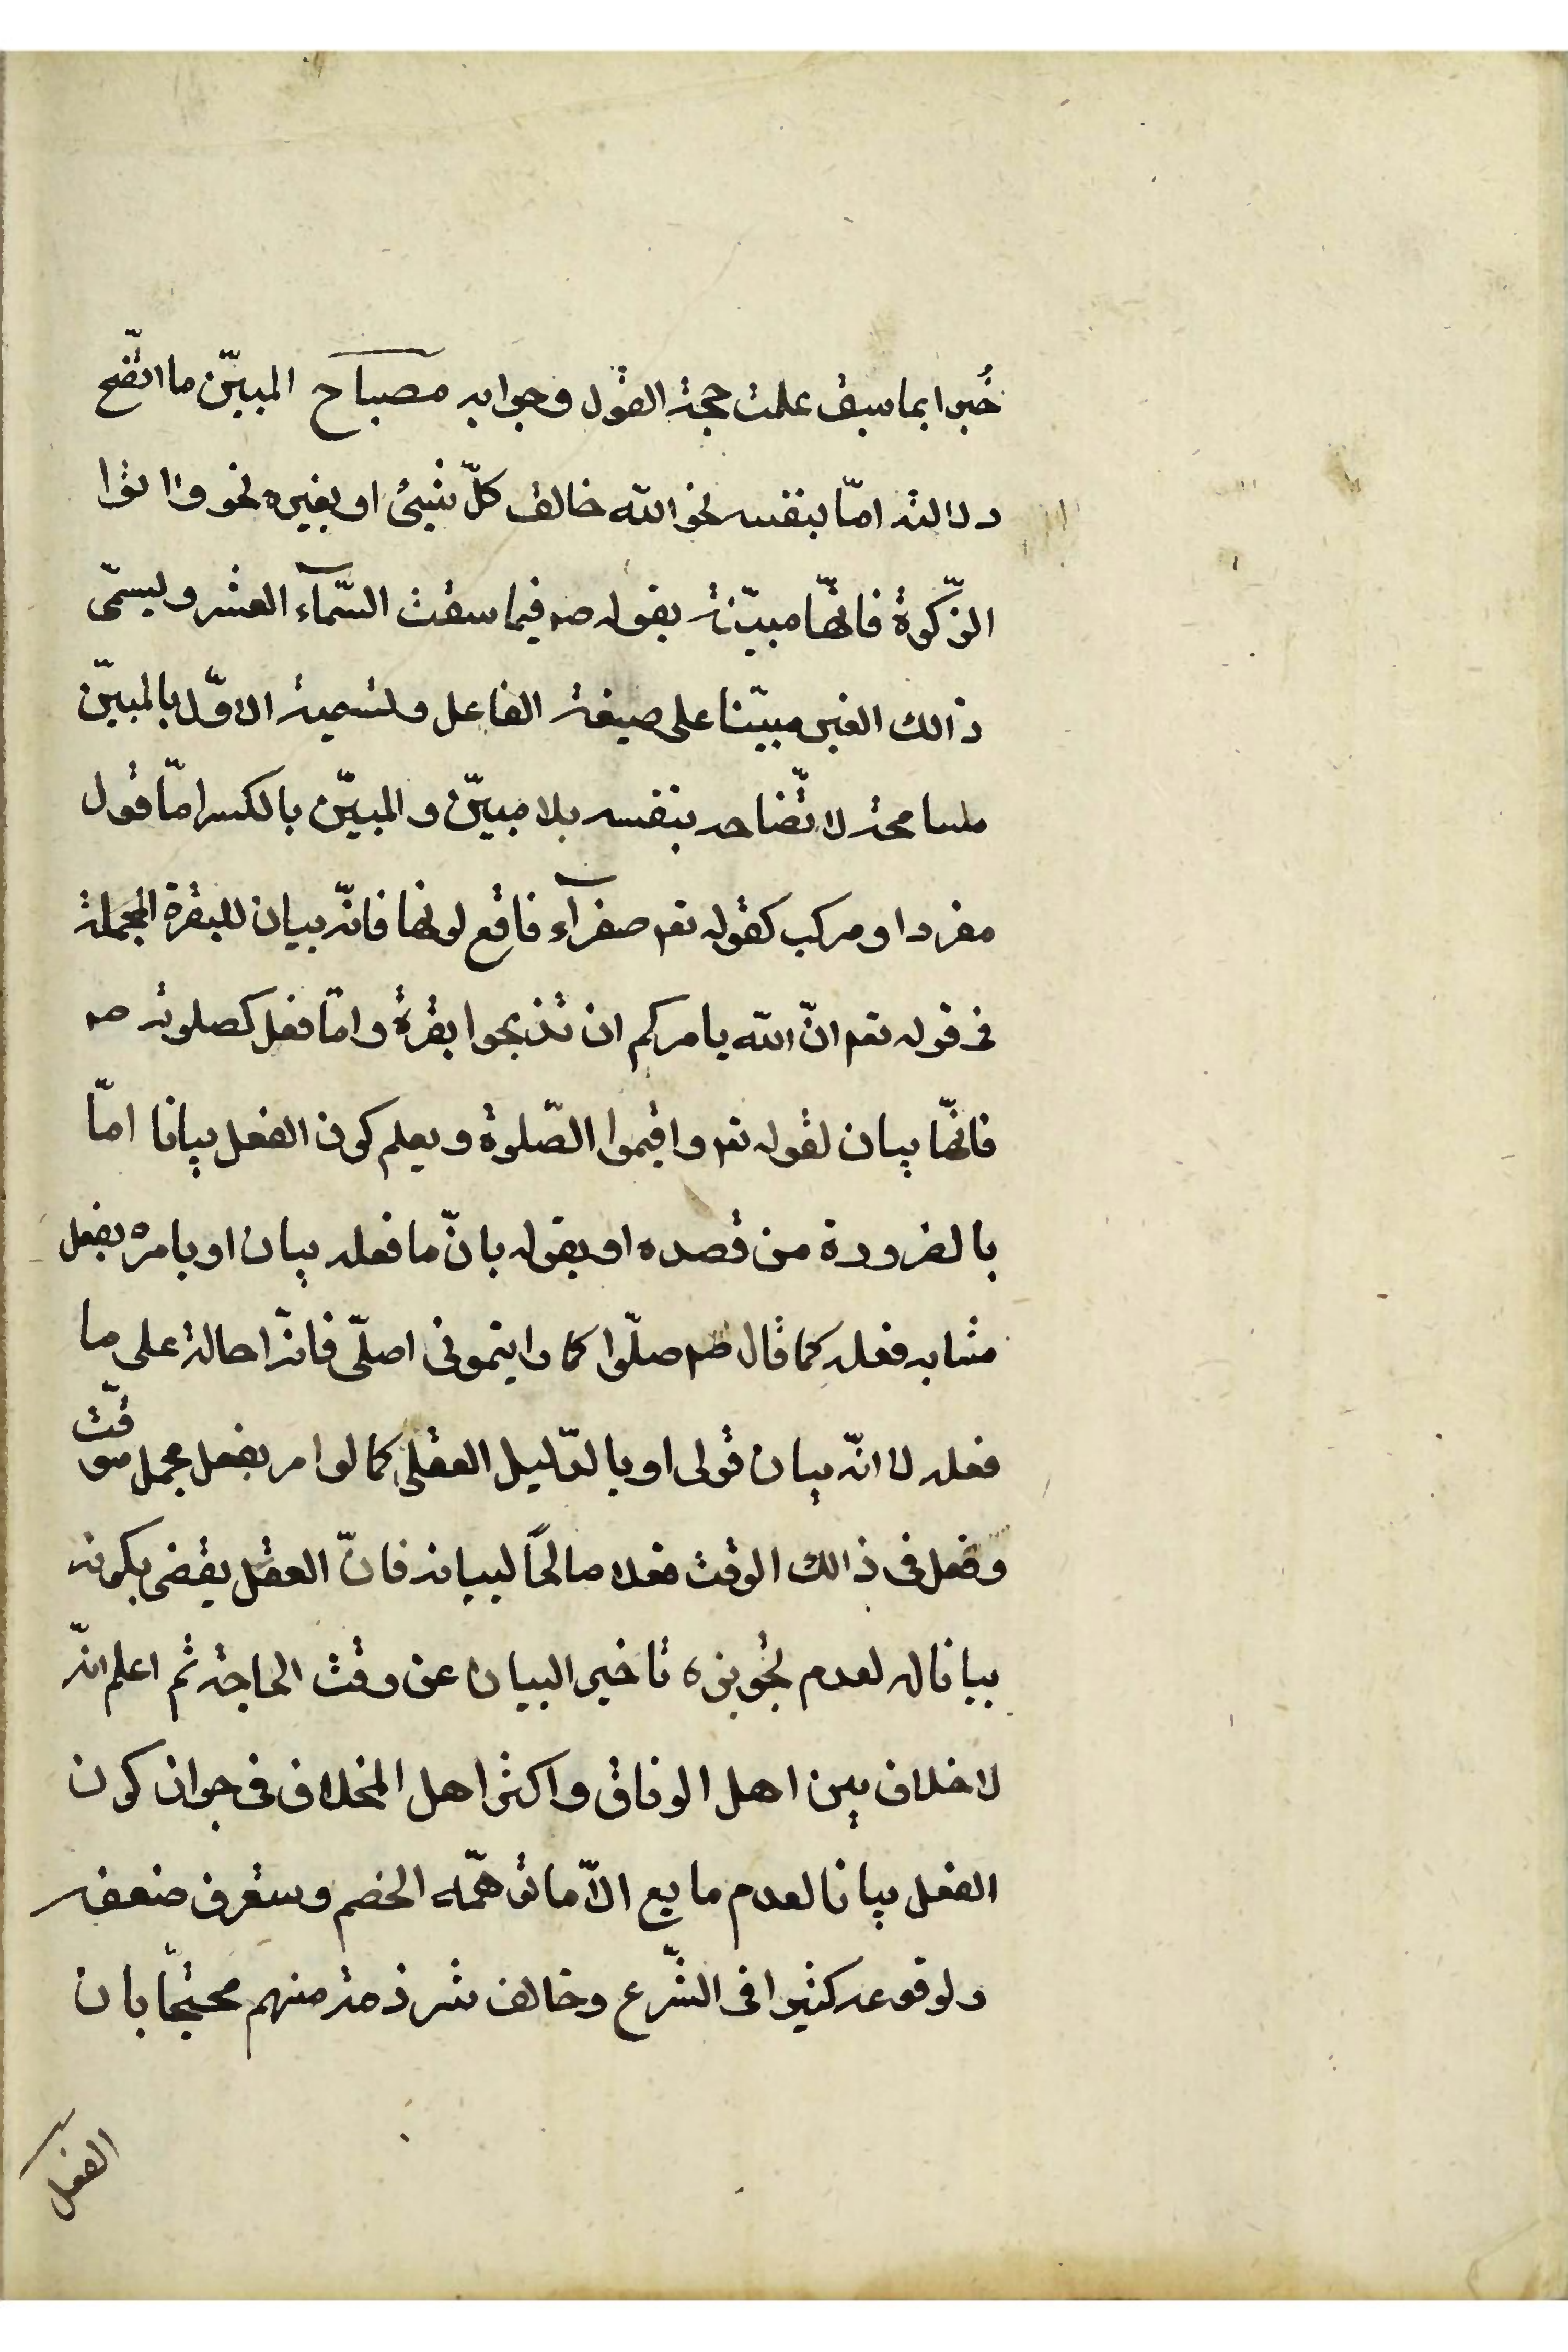 خُبرا بما سبق علمت حجة القول وجوابه مصباح المبيّن ما اتّضح
دلالته امّا بنفسه نحو الله خالق كلّ شيئ او بغيره نحو واتوا
الزّكوة فانّها مبيّنة بقوله صم فيما سقت السّمآء العشر ويسمّى
ذالك الغير مبيّنا على صيغة الفاعل وتسمية الاوّل بالمبيّن
مسامحة لاتّضاحه بنفسه بلا مبيّن والمبيّن بالكسر امّا قول
مفرد او مركب كقوله تعم صفرآء فاقع لونها فانّه بيان للبقرة المجملة
فى قوله تعم انّ الله يامركم ان تذبحوا بقرة وامّا فعل كصلوته صم
فانّها بيان لقوله تعم واقيموا الصّلوة ويعلم كون الفعل بيانا امّا
بالضرورة من قصده او بقوله بانّ ما فعله بيان او بامره بفعل
مشابه فعله كما قال صم صلّوا كما رايتمونى اصلّى فانّه احالة على ما
فعله لا انّه بيان قولى او بالدّليل العقلى كما لو امر بفعل مجمل موقّت
وفعل فى ذالك الوقت فعلا صالحًا لبيانه فانّ العقل يقضى بكونه
بيانا له لعدم تجويزه تاخير البيان عن وقت الحاجة ثم اعلم انّه
لا خلاف بين اهل الوفاق واكثر اهل الخلاف فى جواز كون
الفعل بيانا لعدم مانع الّا ما توهمّه الخصم وستعرف ضعفه
ولوقوعه كثيرا فى الشّرع وخالف شرذمة منهم محتجّا بان
الفعل